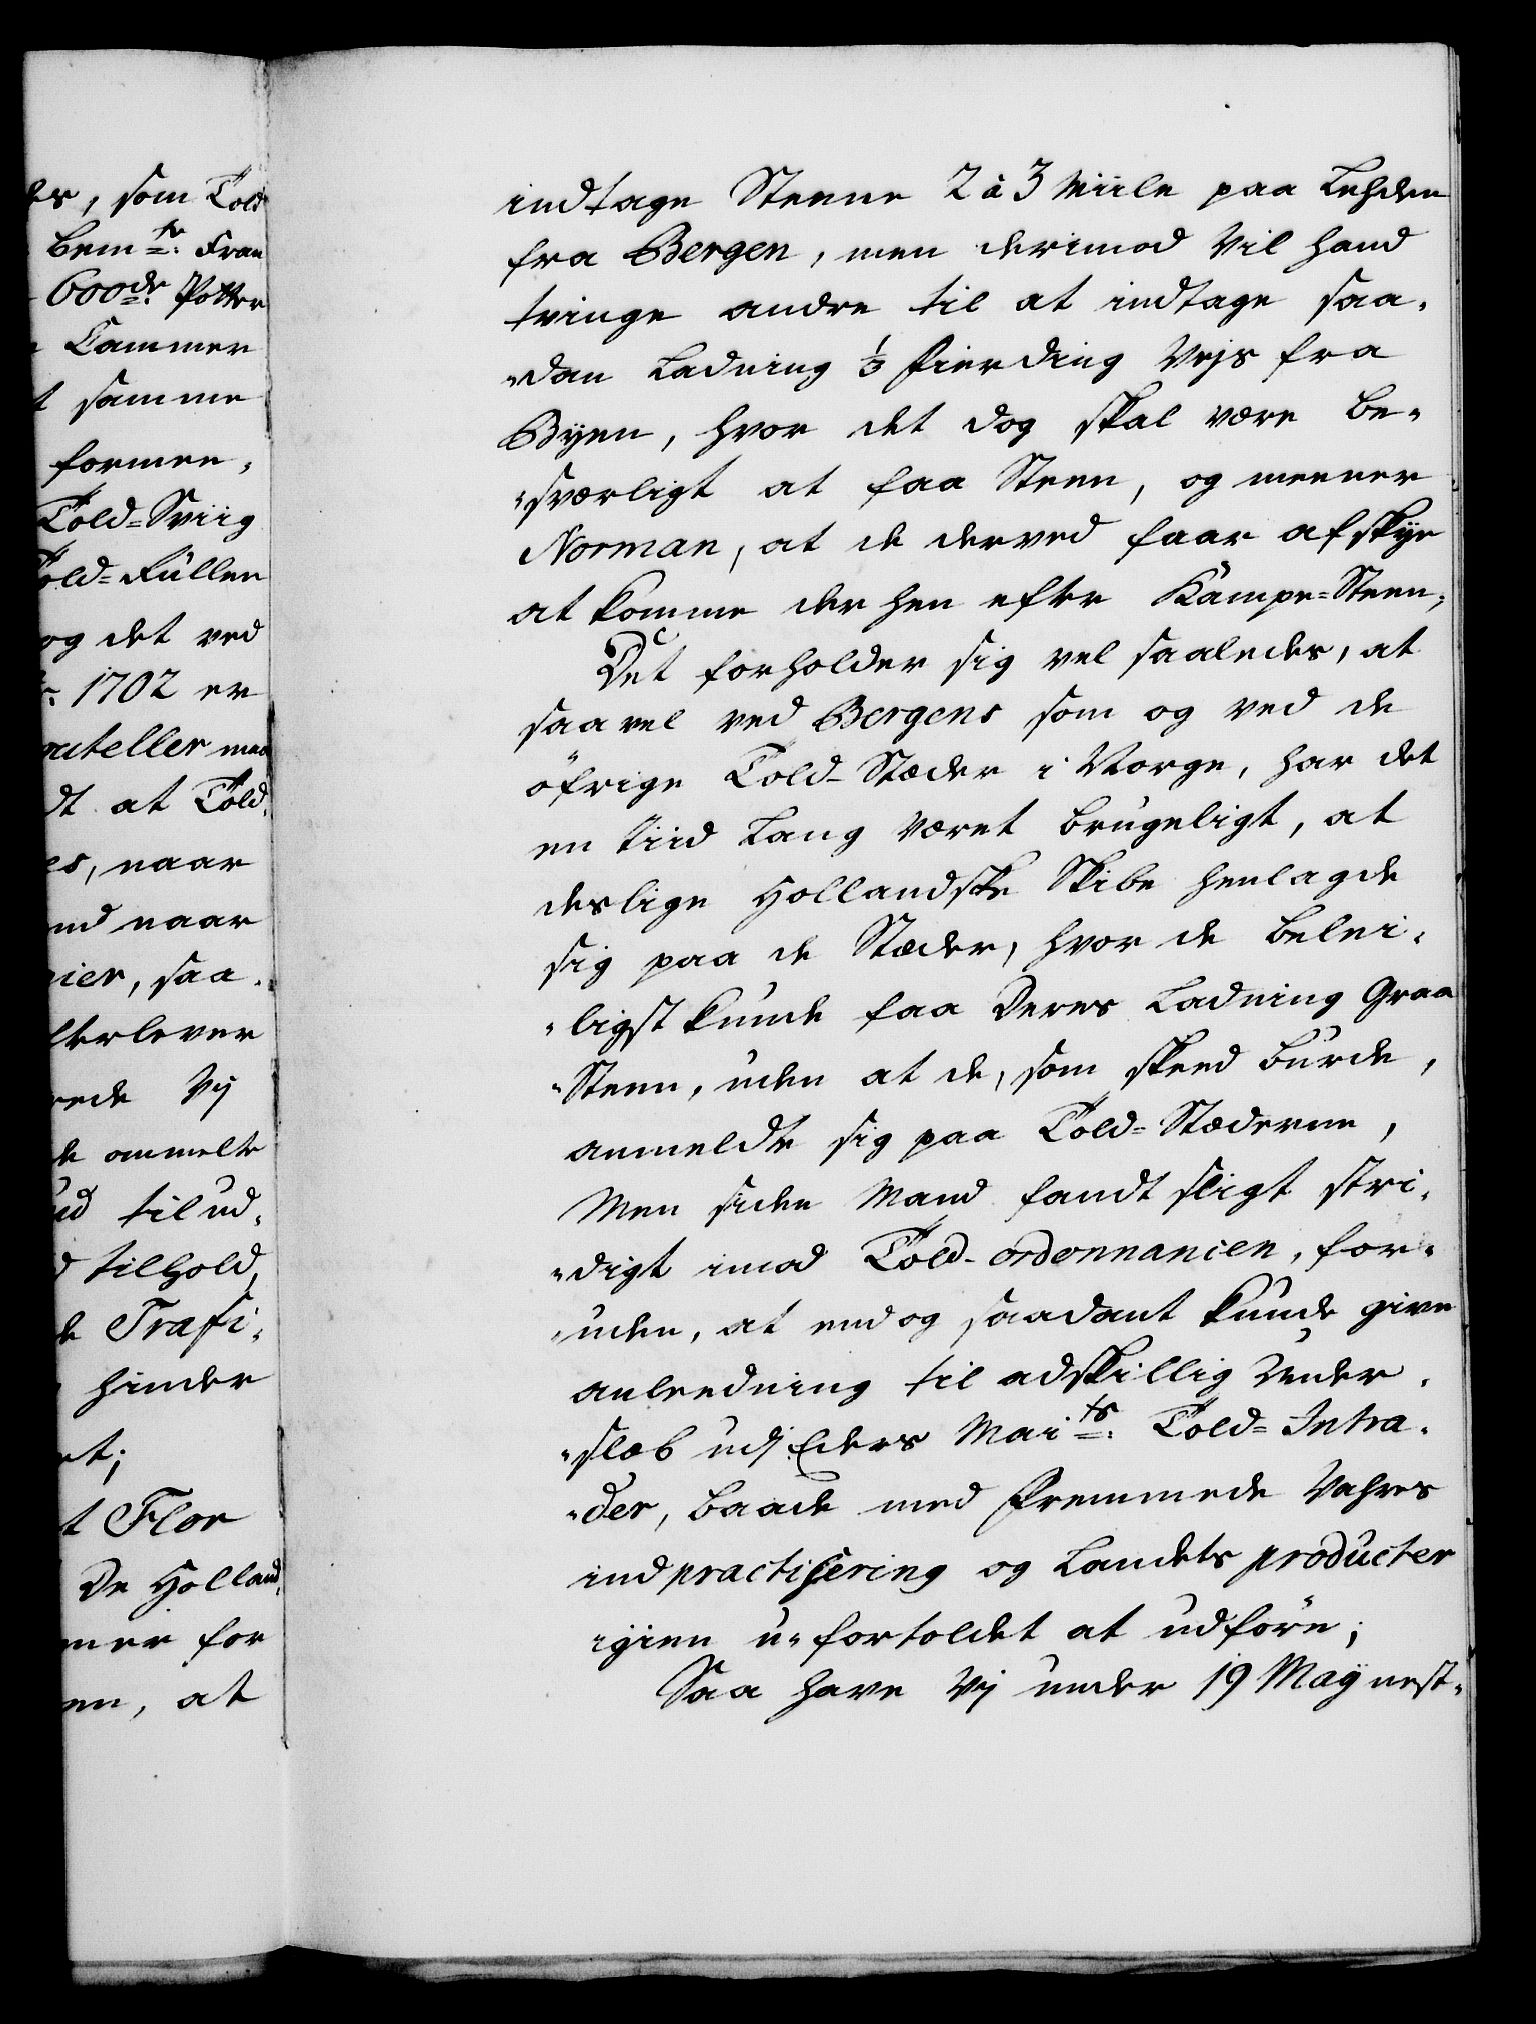 es, som Told
bem te: Fran
600de Potter
Cammer
t samme
formen,
Told-Sviig
Told-Füllen
og det ved
1702 er
outeller maa
dt at Told,
es, naar
end naar
nier, saa,
lterlever
rede Vij
de anmelte
üd til ud,
tilhold,
de Trafi,
hinder
et;
t Flor
De Holland,
mer for
en, at
indtage Steene 2 à 3 Miile paa Lehden
fra Bergen, men derimod vil hand
tvinge andre til at indtage saa,
"dan Ladning 1/3 Fierding Vejs fra
Byen, hvor det dog skal være be,
"sværligt at faa Steen, og meener
Norman, at de derved faar afskye
at komme der hen efter Kämpe-Steen;
Det forholder sig vel saaledes, at
saavel ved Bergens som og ved de
öfrige Told-Stæder i Norge, har det
en tiid Lang været brügeligt, at
deslige Hollandske Skibe henlagde
sig paa de Stæder, hvor de belei,
"ligst kunde faa Deres Ladning Graa
"Steen, uden at de, som skeed bürde,
anmeldte sig paa Told-Stæderne,
Men siden Mand fandt sligt stri,
"digt imod Told-ordonnancen, for,
"uden, at end og saadant kunde give
anleedning til adskillig Under,
"slæb udj Eders Mai ts: Told-Intra,
"der, baade med Fremmede Vahres
indpractisering og Landets producter
igien u-fortoldet at udföre;
Saa have Vij under 19 Maÿ nest,